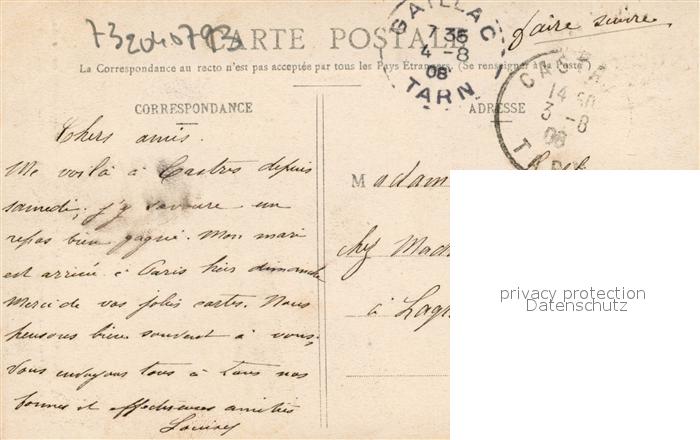 73204079
CARTE POSTALE
faire suivre
La Correspondance au recto n'est pas acceptée par tous les Pays Étrangers. (Se renseigner à la Poste
GAILLAC
7 35
4 -8
08
TARN
14
3 -8
08
CORRESPONDANCE
ADRESSE
Chers amis.
Me voilà à Castres depuis
samedi; j'y savoure un
repos bien gagné. Mon mari
est arrivé à Paris hier dimanche
Merci de vos jolies cartes. Nous
pensons bien souvent à vous;
Vous envoyons tous à tous nos
bonnes et affectueuses amitiés
Madam
chez Mad
à
privacy protection
Datenschutz